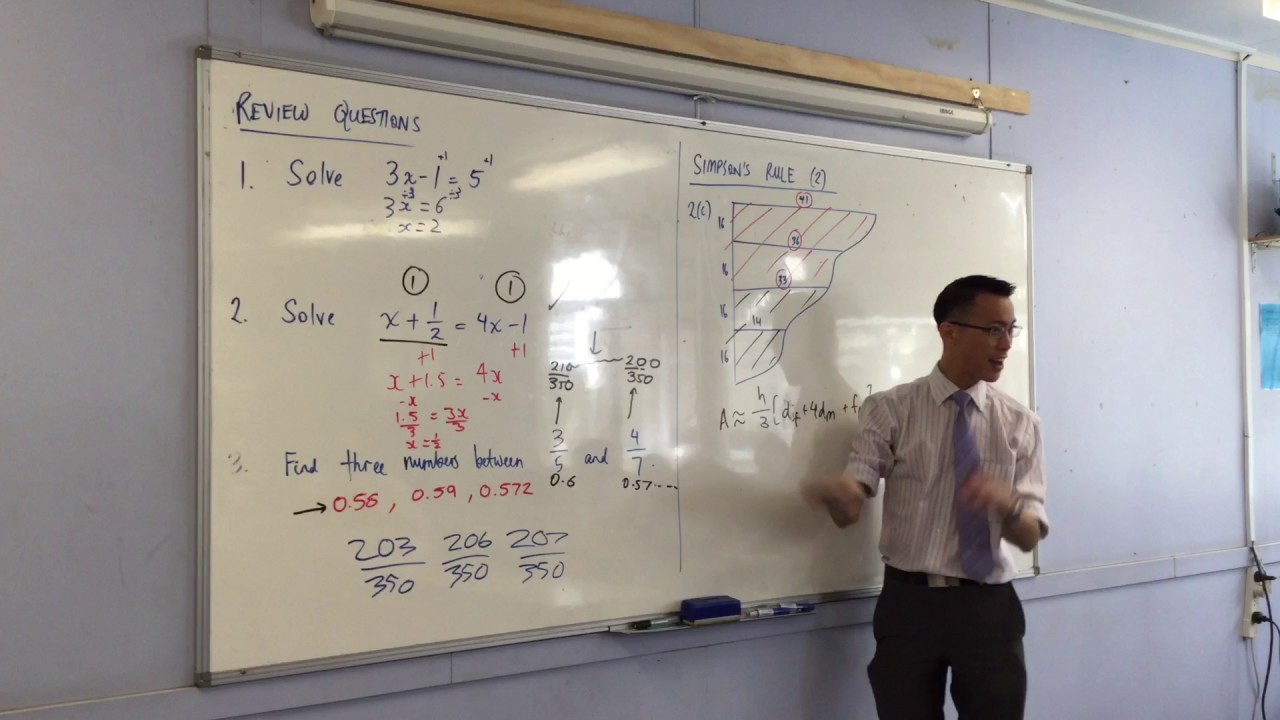 REVIEW QUESTIONS
1. Solve 3x-1 = 5
+1 +1
÷3 ÷3
3x = 6
x = 2
① ①
2. Solve x + 1/2 = 4x-1
+1 +1
x+1.5 = 4x
-x -x
1.5/3 = 3x/3
x = 1/2
210/350 200/350
3. Find three numbers between 3/5 and 4/7.
0.6 0.57....
→ 0.58, 0.59, 0.572
203/350 206/350 207/350
SIMPSON'S RULE (2)
2(c)
41
16
36
16
33
16
14
16
A ≈ h/3 [ df + 4dm +